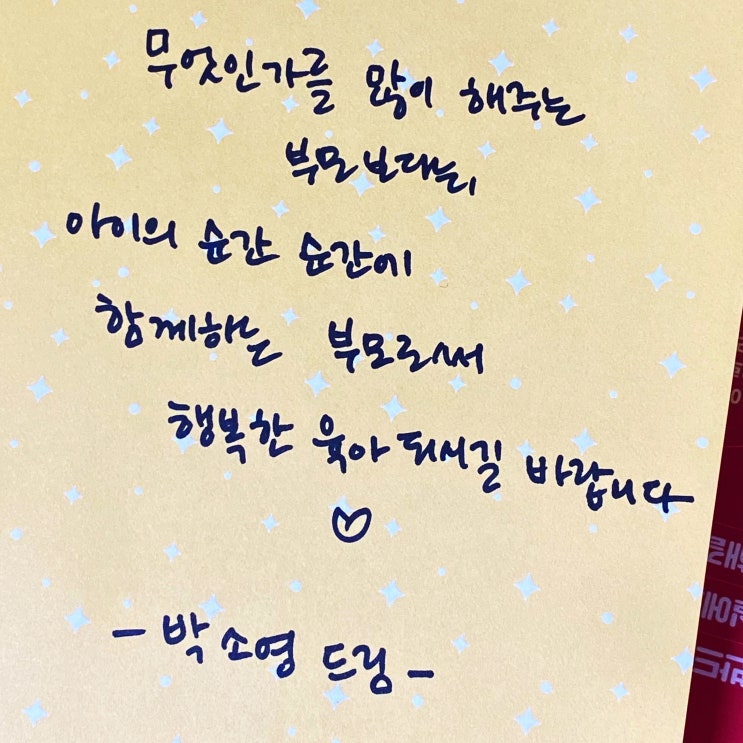 무엇인가를 많이 해주는
부모보다는,
아이의 순간 순간에
함께하는 부모로써
행복한 육아 되시길 바랍니다
♡
- 박소영 드림 -